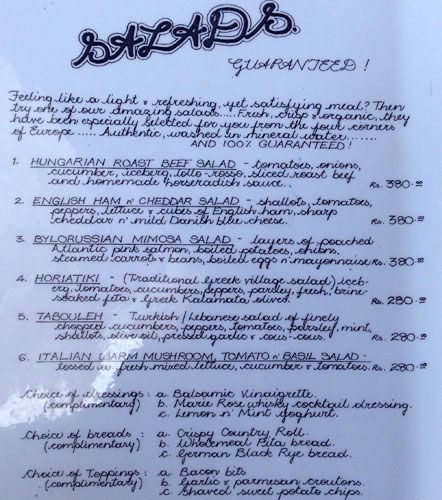 SALADS.
GUARANTEED!
Feeling like a light & refreshing, yet satisfying meal? Then
try one of our amazing salads..... Fresh, crisp & organic, they
have been especially selected for you from the four corners
of Europe ..... Authentic, washed in mineral water........
AND 100% GUARANTEED!
1. HUNGARIAN ROAST BEEF SALAD - tomatoes, onions,
cucumber, iceberg, lollo-rosso, sliced roast beef
and homemade horseradish sauce. Rs. 380.00
2. ENGLISH HAM n' CHEDDAR SALAD - shallots, tomatoes,
peppers, lettuce & cubes of English ham, sharp
cheddar n' mild Danish blue cheese. Rs. 380.00
3. BYLORUSSIAN MIMOSA SALAD - layers of poached
Atlantic pink salmon, boiled potatoes, onions,
steamed carrots & beans, boiled eggs n' mayonnaise Rs. 380.00
4. HORIATIKI - (Traditional Greek village salad) iceb-
erg, tomatoes, cucumbers, peppers, parsley, fresh, brine-
soaked feta & Greek Kalamata olives. Rs. 280.00
5. TABOULEH - Turkish/Lebanese salad of finely
chopped cucumbers, peppers, tomatoes, parsley, mint,
shallots, olive oil, pressed garlic & cous-cous. Rs. 280.00
6. ITALIAN WARM MUSHROOM, TOMATO n' BASIL SALAD -
tossed w. fresh mixed lettuce, cucumber & tomatoes. Rs. 280.00
Choice of dressings: a. Balsamic Vinaigrette.
(complimentary) b. Marie Rose whisky cocktail dressing.
c. Lemon n' Mint Yoghurt.
Choice of breads: a. Crispy Country Roll.
(complimentary) b. Wholemeal Pita bread.
c. German Black Rye bread.
Choice of Toppings: a. Bacon bits
(complimentary) b. Garlic & parmesan croutons.
c. Shaved sweet potato chips.